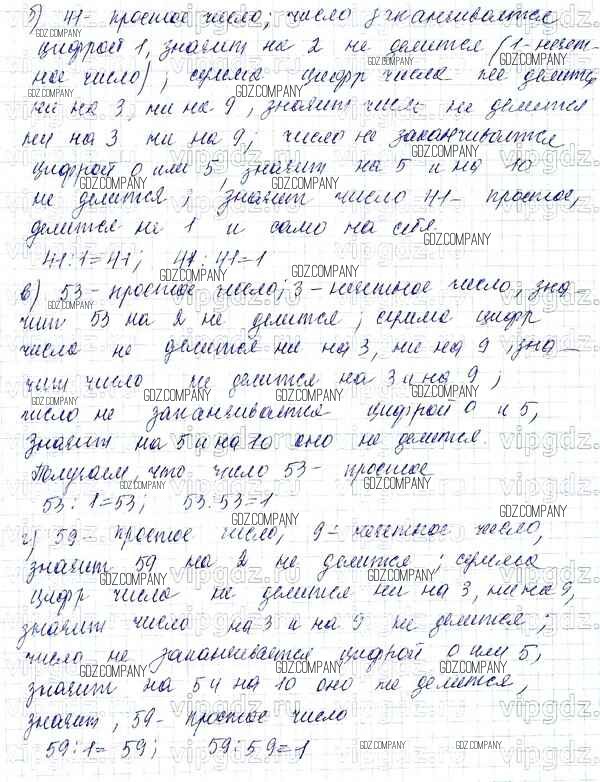 б) 41 - простое число; число заканчивается
цифрой 1, значит на 2 не делится (1 - нечет-
ное число); сумма цифр числа не делится
ни на 3, ни на 9, значит число не делится
ни на 3 ни на 9; число не заканчивается
цифрой 0 или 5, значит на 5 и на 10
не делится; значит число 41 - простое,
делится на 1 и само на себя.
41:1=41; 41:41=1
в) 53 - простое число; 3 - нечетное число, зна-
чит 53 на 2 не делится; сумма цифр
числа не делится ни на 3, ни на 9, зна-
чит число не делится на 3 и на 9;
число не заканчивается цифрой 0 и 5,
значит на 5 и на 10 оно не делится.
Получаем, что число 53 - простое
53:1=53; 53:53=1
г) 59 - простое число, 9 - нечетное число,
значит 59 на 2 не делится; сумма
цифр числа не делится ни на 3, ни на 9,
значит число на 3 и на 9 не делится;
число не заканчивается цифрой 0 или 5,
значит на 5 и на 10 оно не делится,
значит, 59 - простое число
59:1=59; 59:59=1
GDZ.COMPANY
vipgdz.ru